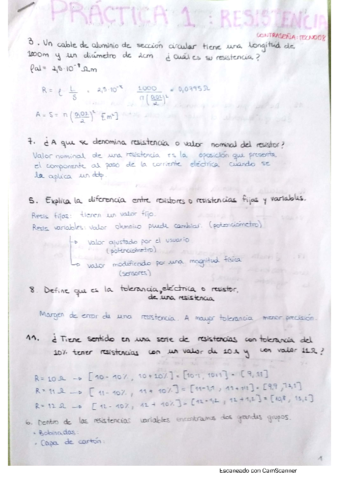 PRÁCTICA 1: RESISTENCIA
CONTRASEÑA:
3. Un cable de aluminio de sección circular tiene una longitud de
1000m y un diámetro de 2cm ¿Cuál es su resistencia?
7. ¿A que se denomina resistencia o valor nominal del resistor?
Valor nominal de una resistencia es la oposición que presenta
el componente al paso de la corriente eléctrica cuando se
le aplica un ddp
5. Explica la diferencia entre resistores o resistencias fijas y variables.
Resis fijas: tienen un valor fijo.
Resis variables: valor ohmico puede cambiar (potenciómetro)
→ valor ajustado por el usuario
(potenciómetro)
→ valor modificado por una magnitud física
(sensores)
8. Define que es la tolerancia eléctrica o resistor.
de una resistencia
Margen de error de una resistencia. A mayor tolerancia menor precisión.
11. ¿Tiene sentido en una serie de resistencias con tolerancia del
10% tener resistencias con un valor de 10Ω y con valor 11Ω?
R = 10Ω → [10 - 10%, 10 + 10%] = [10-1, 10+1] = [9, 11]
R = 11Ω → [11 - 10%, 11 + 10%] =
R = 12Ω → [12 - 10%, 12 + 10%] =
6. Dentro de las resistencias variables encontramos dos grandes grupos.
• Bobinadas
• Capa de carbón.
1
Escaneado con CamScanner